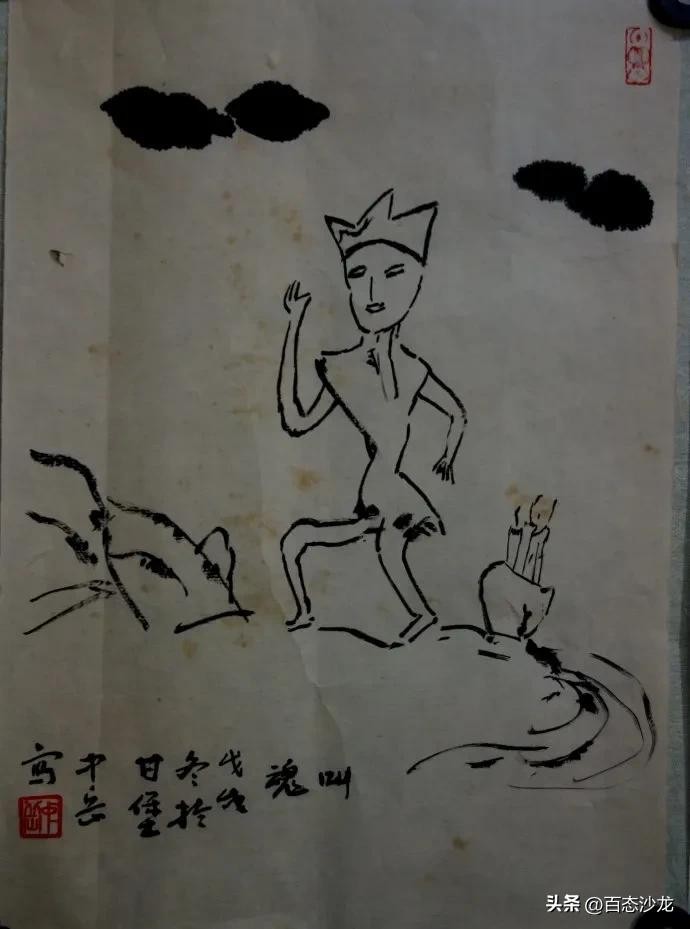 叫魂
戊戌
冬於
甘堡
中岳
写
中岳
头条 @百态沙龙